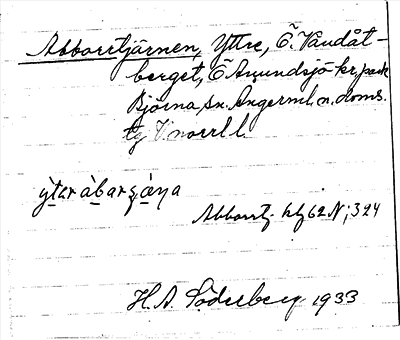 Abborrtjärnen, Yttre, Ö. Våndåt-
berget, Ö Amundsjö kr.park
Björna sn. Ångerml. n. doms.
tg V.norrl.l.
ỳtər àbarʂæ̀ɳa
Abborrtj. hlg 62 N; 324
H.A. Söderberg 1933